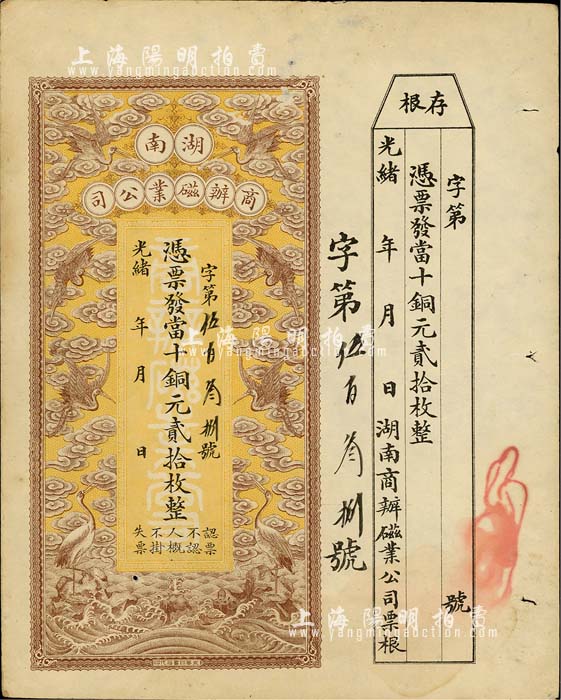 上海陽明拍賣
www.yangmingauction.com
存根
字第 號
憑票發當十銅元貳拾枚整
光緒 年 月 日湖南商辦磁業公司票根
字第伍百叁捌號
湖南
商辦磁業公司
字第伍百叁捌號
憑票發當十銅元貳拾枚整
光緒 年 月 日
認票不認人
概不掛失票
上海陽明拍賣
www.yangmingauction.com
上海陽明拍賣
www.yangmingauction.com